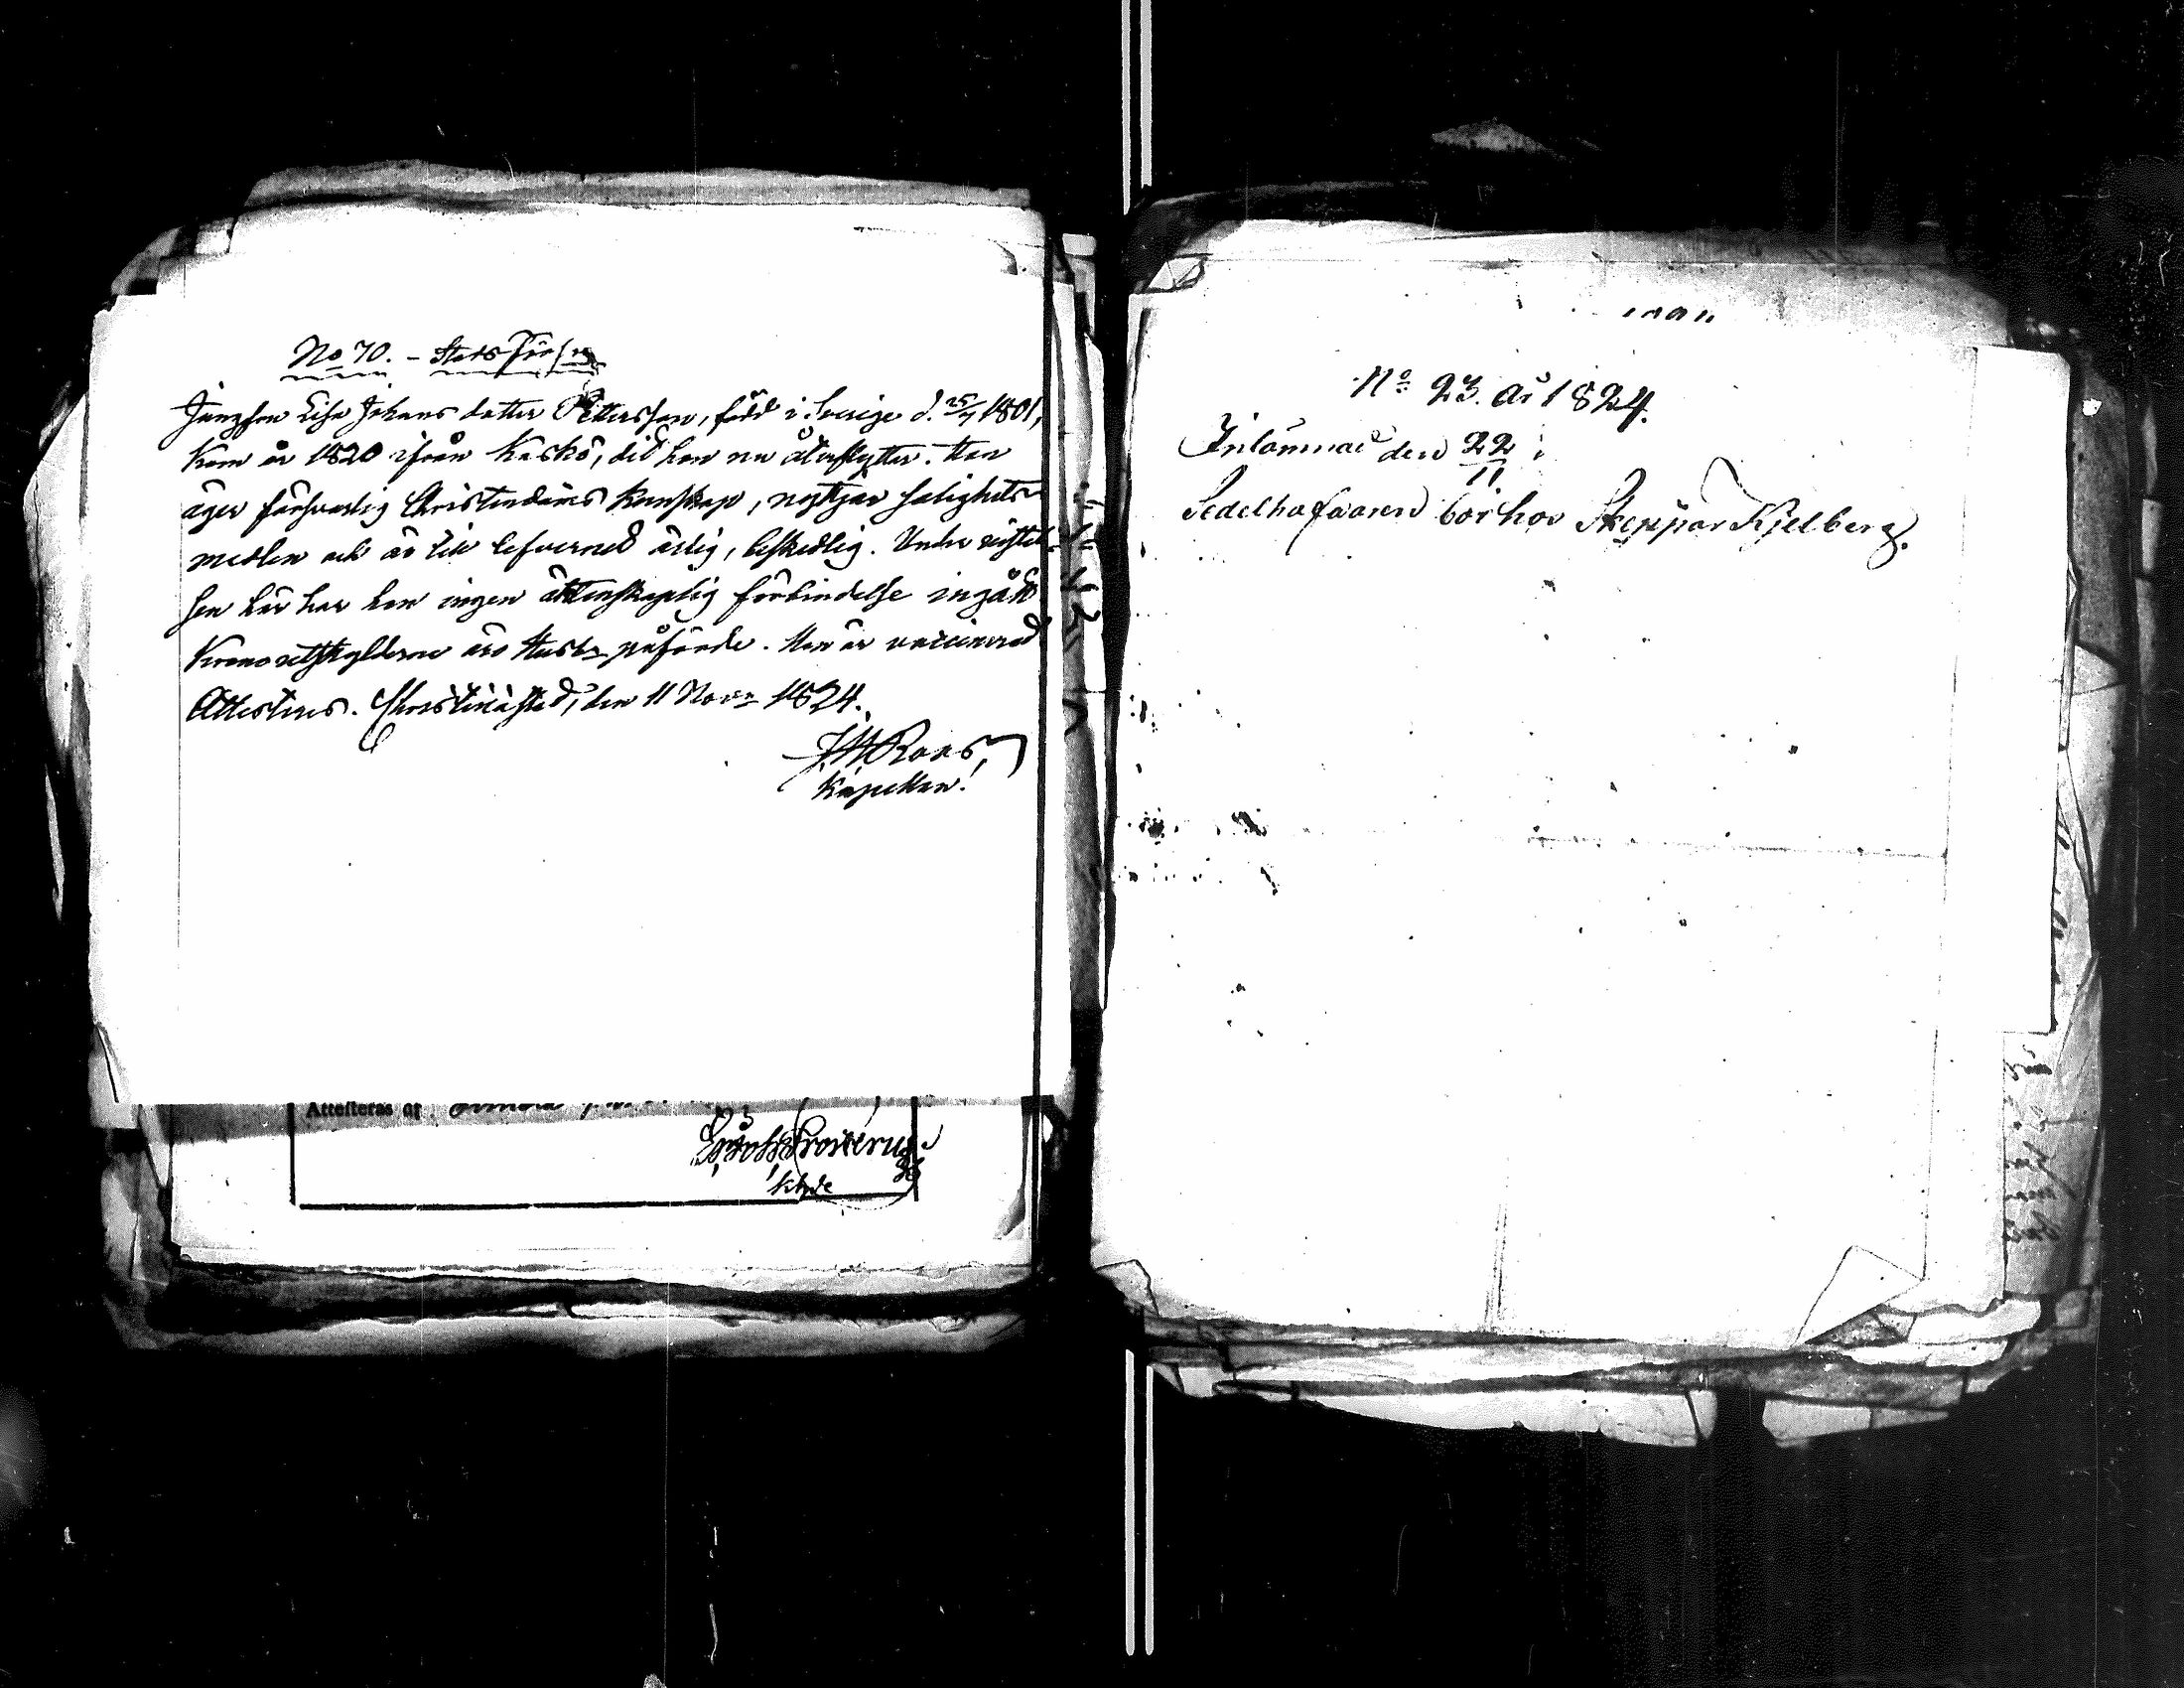 No 70. – Stads Förs:ng
Jungfrun Lisa Johans dotter Pettersson, född i Sverige d. 25/7 1801,
kom år 1820 ifrån Kaskö, dit hon nu återflyttar. Hon
äger försvarlig Christendoms kunskap, nyttjar salighets-
medlen och är till lefvernet ärlig, beskedlig. Under vistel-
sen här har hon ingen äktenskaplig förbindelse ingått.
Kronoutskylderne äro påförde. Hon är vaccinerad
Attesteras. Christinæstad, den 11 Nov:r 1824.
J. W. Roos,
Kapellan.
Attesteras af
No 23. år 1824.
Inlämnad den 22/11
Sedelhafvaren bor hos Skeppar Kjelberg.